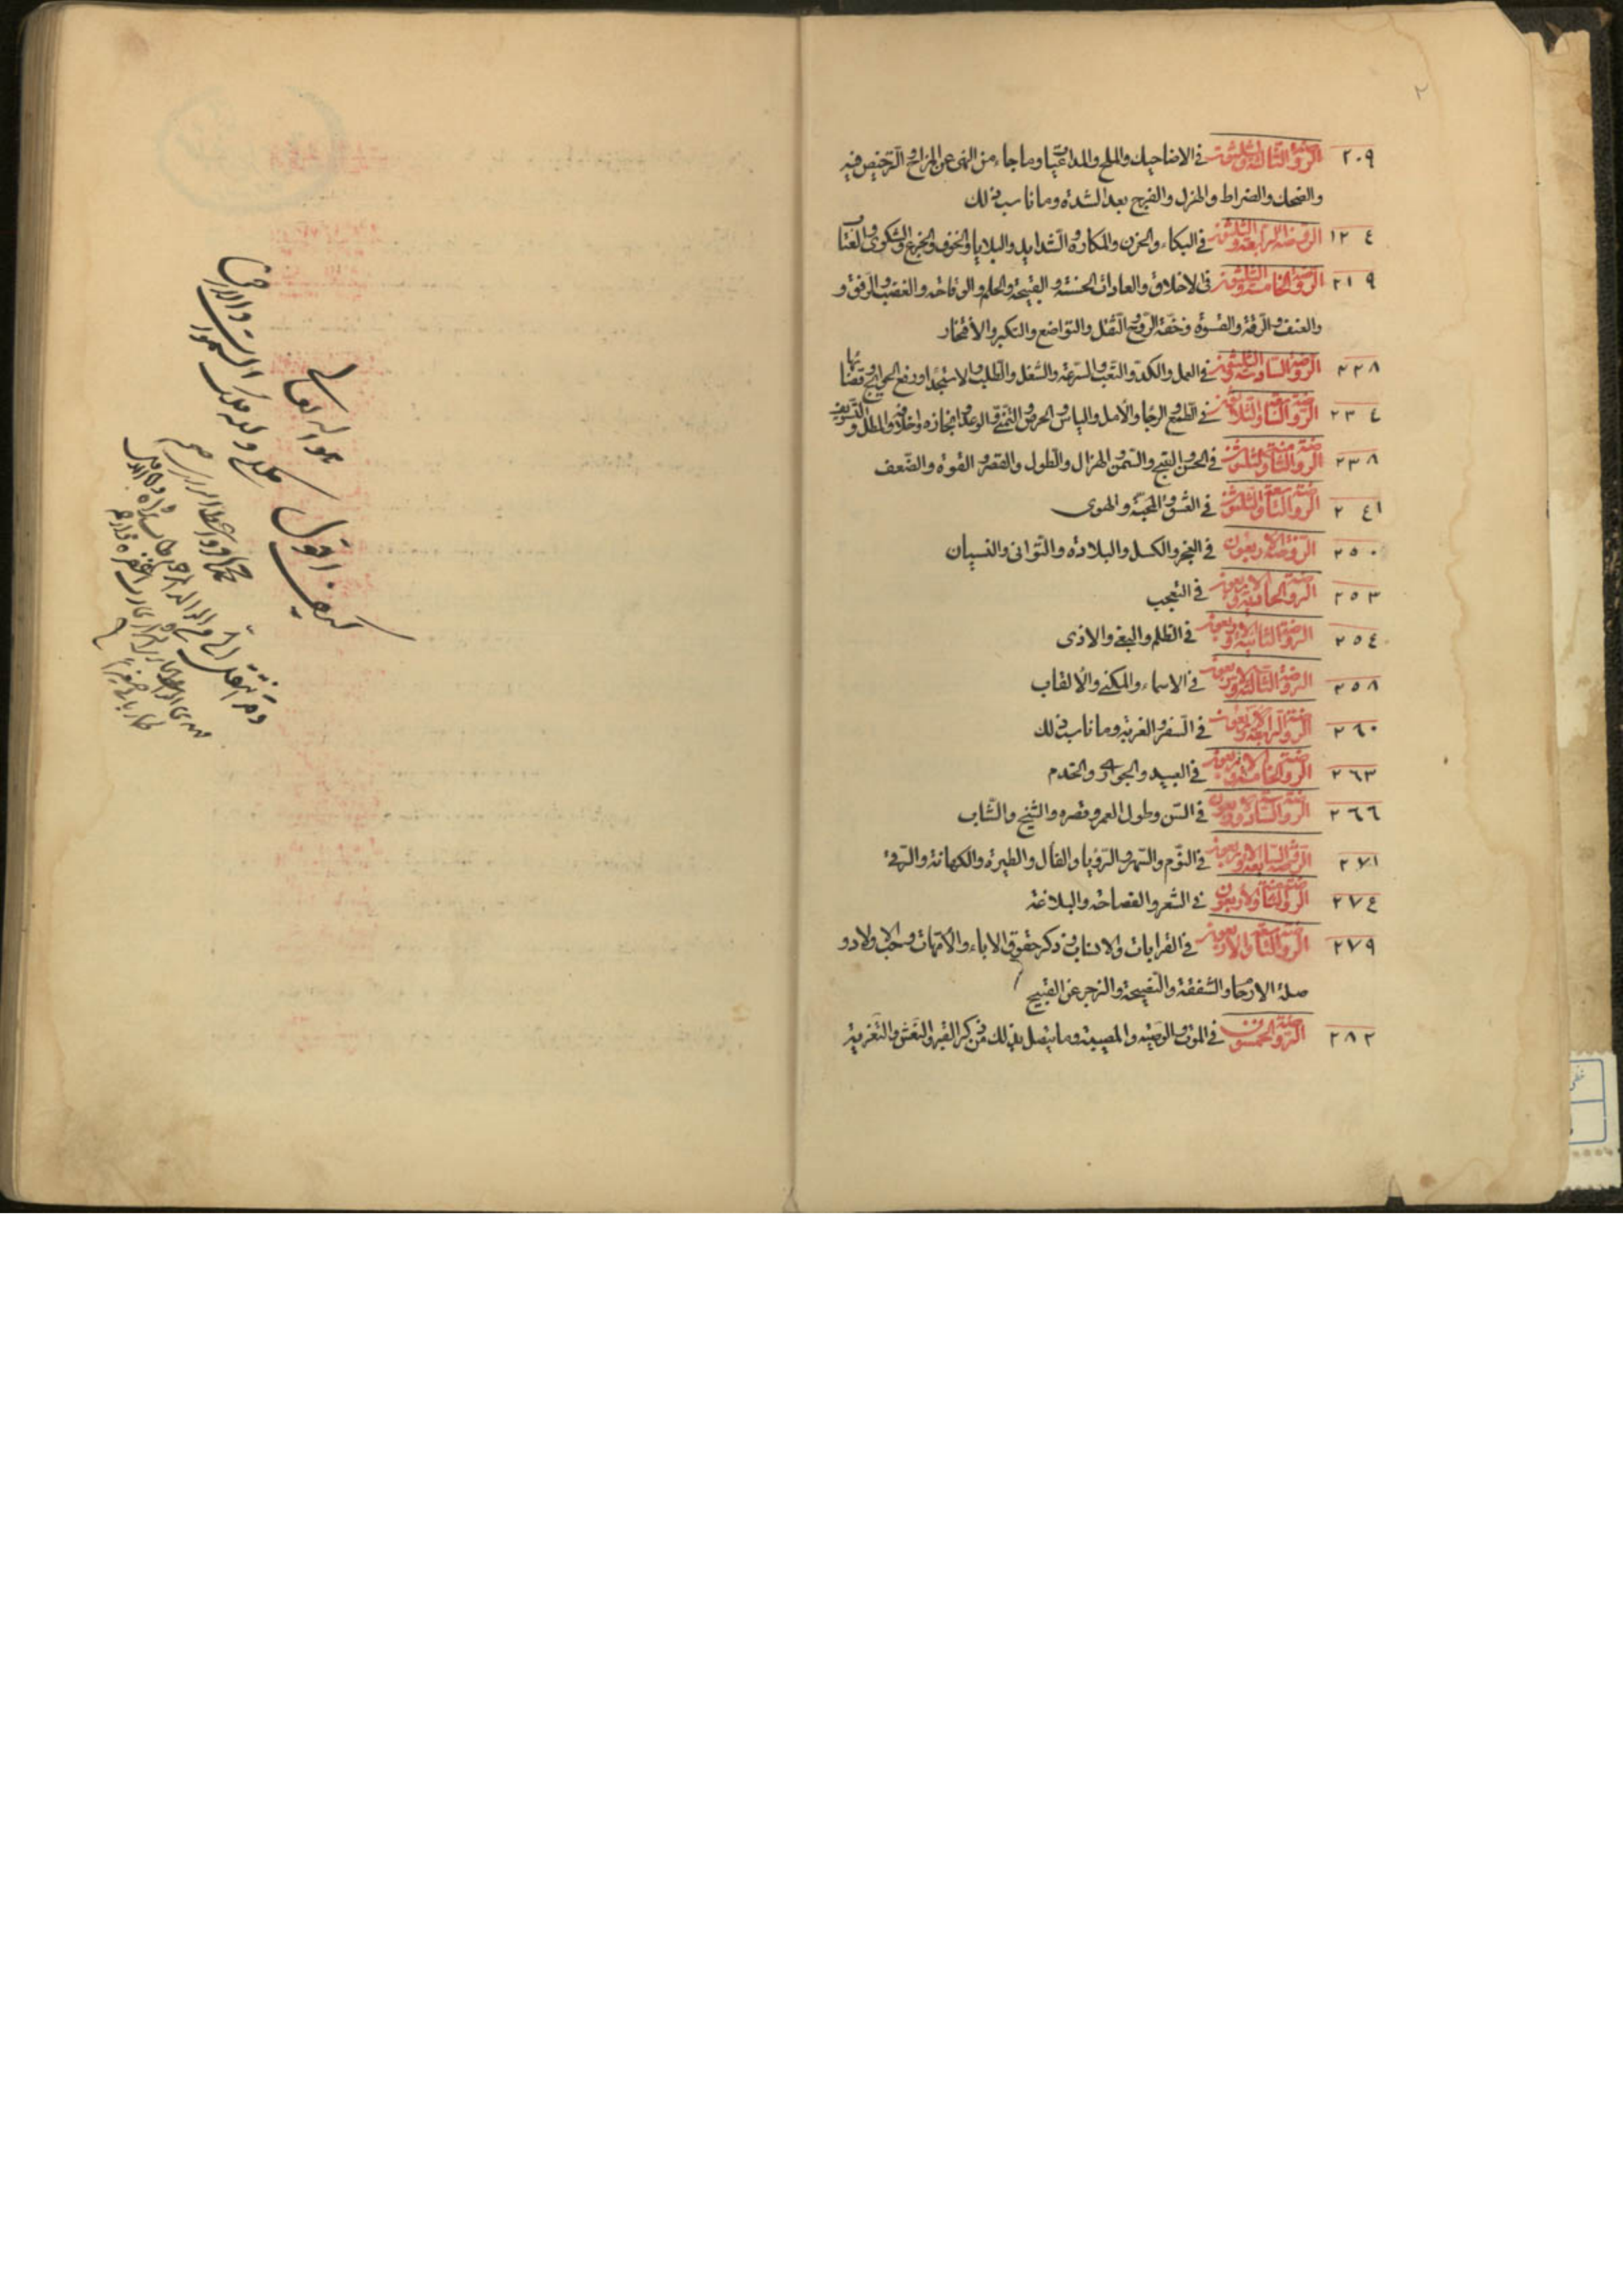 ٢
٢٠٩ الروضة الثالثة والثلثون في الاضاحيك والملح والمداعبات وما جاء من النهى عن المزاح والترخيص فيه
والضحك والضراط والهزل والفرح بعد الشدة وما ناسب ذلك
١٢٤ الروضة الرابعة والثلثون في البكاء والحزن والمكاره والشدايد والبلايا والخوف والجزع والشكوى والعتاب
٢١٩ الروضة الخامسة والثلثون في الاخلاق والعادات الحسنة والقبيحة والحلم والوقاحة والغضب والرفق و
والعنف والرقة والقسوة وخفة الروح والثقل والتواضع والتكبر والافتخار
٢٢٨ الروضة السادسة والثلثون في العمل والكد والتعب والسرعة والشغل والطلب والاستجداء ورفع الحوايج وقضائها
٢٣٤ الروضة السابعة والثلاثون في الطمع والرجا والأمل والياس والحرص والتمني والوعد وانجازه واخلافه والمطل والتسويف
٢٣٨ الروضة الثامنة والثلثون في الحسن والقبح والسمن والهزال والطول والقصر والقوة والضعف
٢٤١ الروضة التاسعة والثلثون في العشق والمحبة والهوى
٢٥٠ الروضة الاربعون في العجز والكسل والبلادة والتوانى والنسيان
٢٥٣ الروضة الحادية والاربعون في التعجب
٢٥٤ الروضة الثانية والاربعون في الظلم والبغي والاذى
٢٥٨ الروضة الثالثة والاربعون في الاسماء والمكنى والألقاب
٢٦٠ الروضة الرابعة والاربعون في السفر والغربة وما ناسب ذلك
٢٦٣ الروضة الخامسة والاربعون في العبيد والجوار والخدم
٢٦٦ الروضة السادسة والاربعون في السن وطول العمر وقصره والشيخ والشاب
٢٧١ الروضة السابعة والاربعون في النوم والسهر والرؤيا والفال والطيرة والكهانة والرقى
٢٧٤ الروضة الثامنة والاربعون في الشعر والفصاحة والبلاغة
٢٧٩ الروضة التاسعة والاربعون في القرابات والانساب وذكر حقوق الاباء والأمهات وحب الاولاد و
صلة الارحام والشفقة والنصيحة والزجر عن القبيح
٢٨٢ الروضة الخمسون في الموت والوصية والمصيبة وما يتصل بذلك من ذكر القبر والنعش والتعزية
هو الله تعالى
كيف اقول ملكي ولله ملك السموات والارض
قد انتقل الي من الوالد